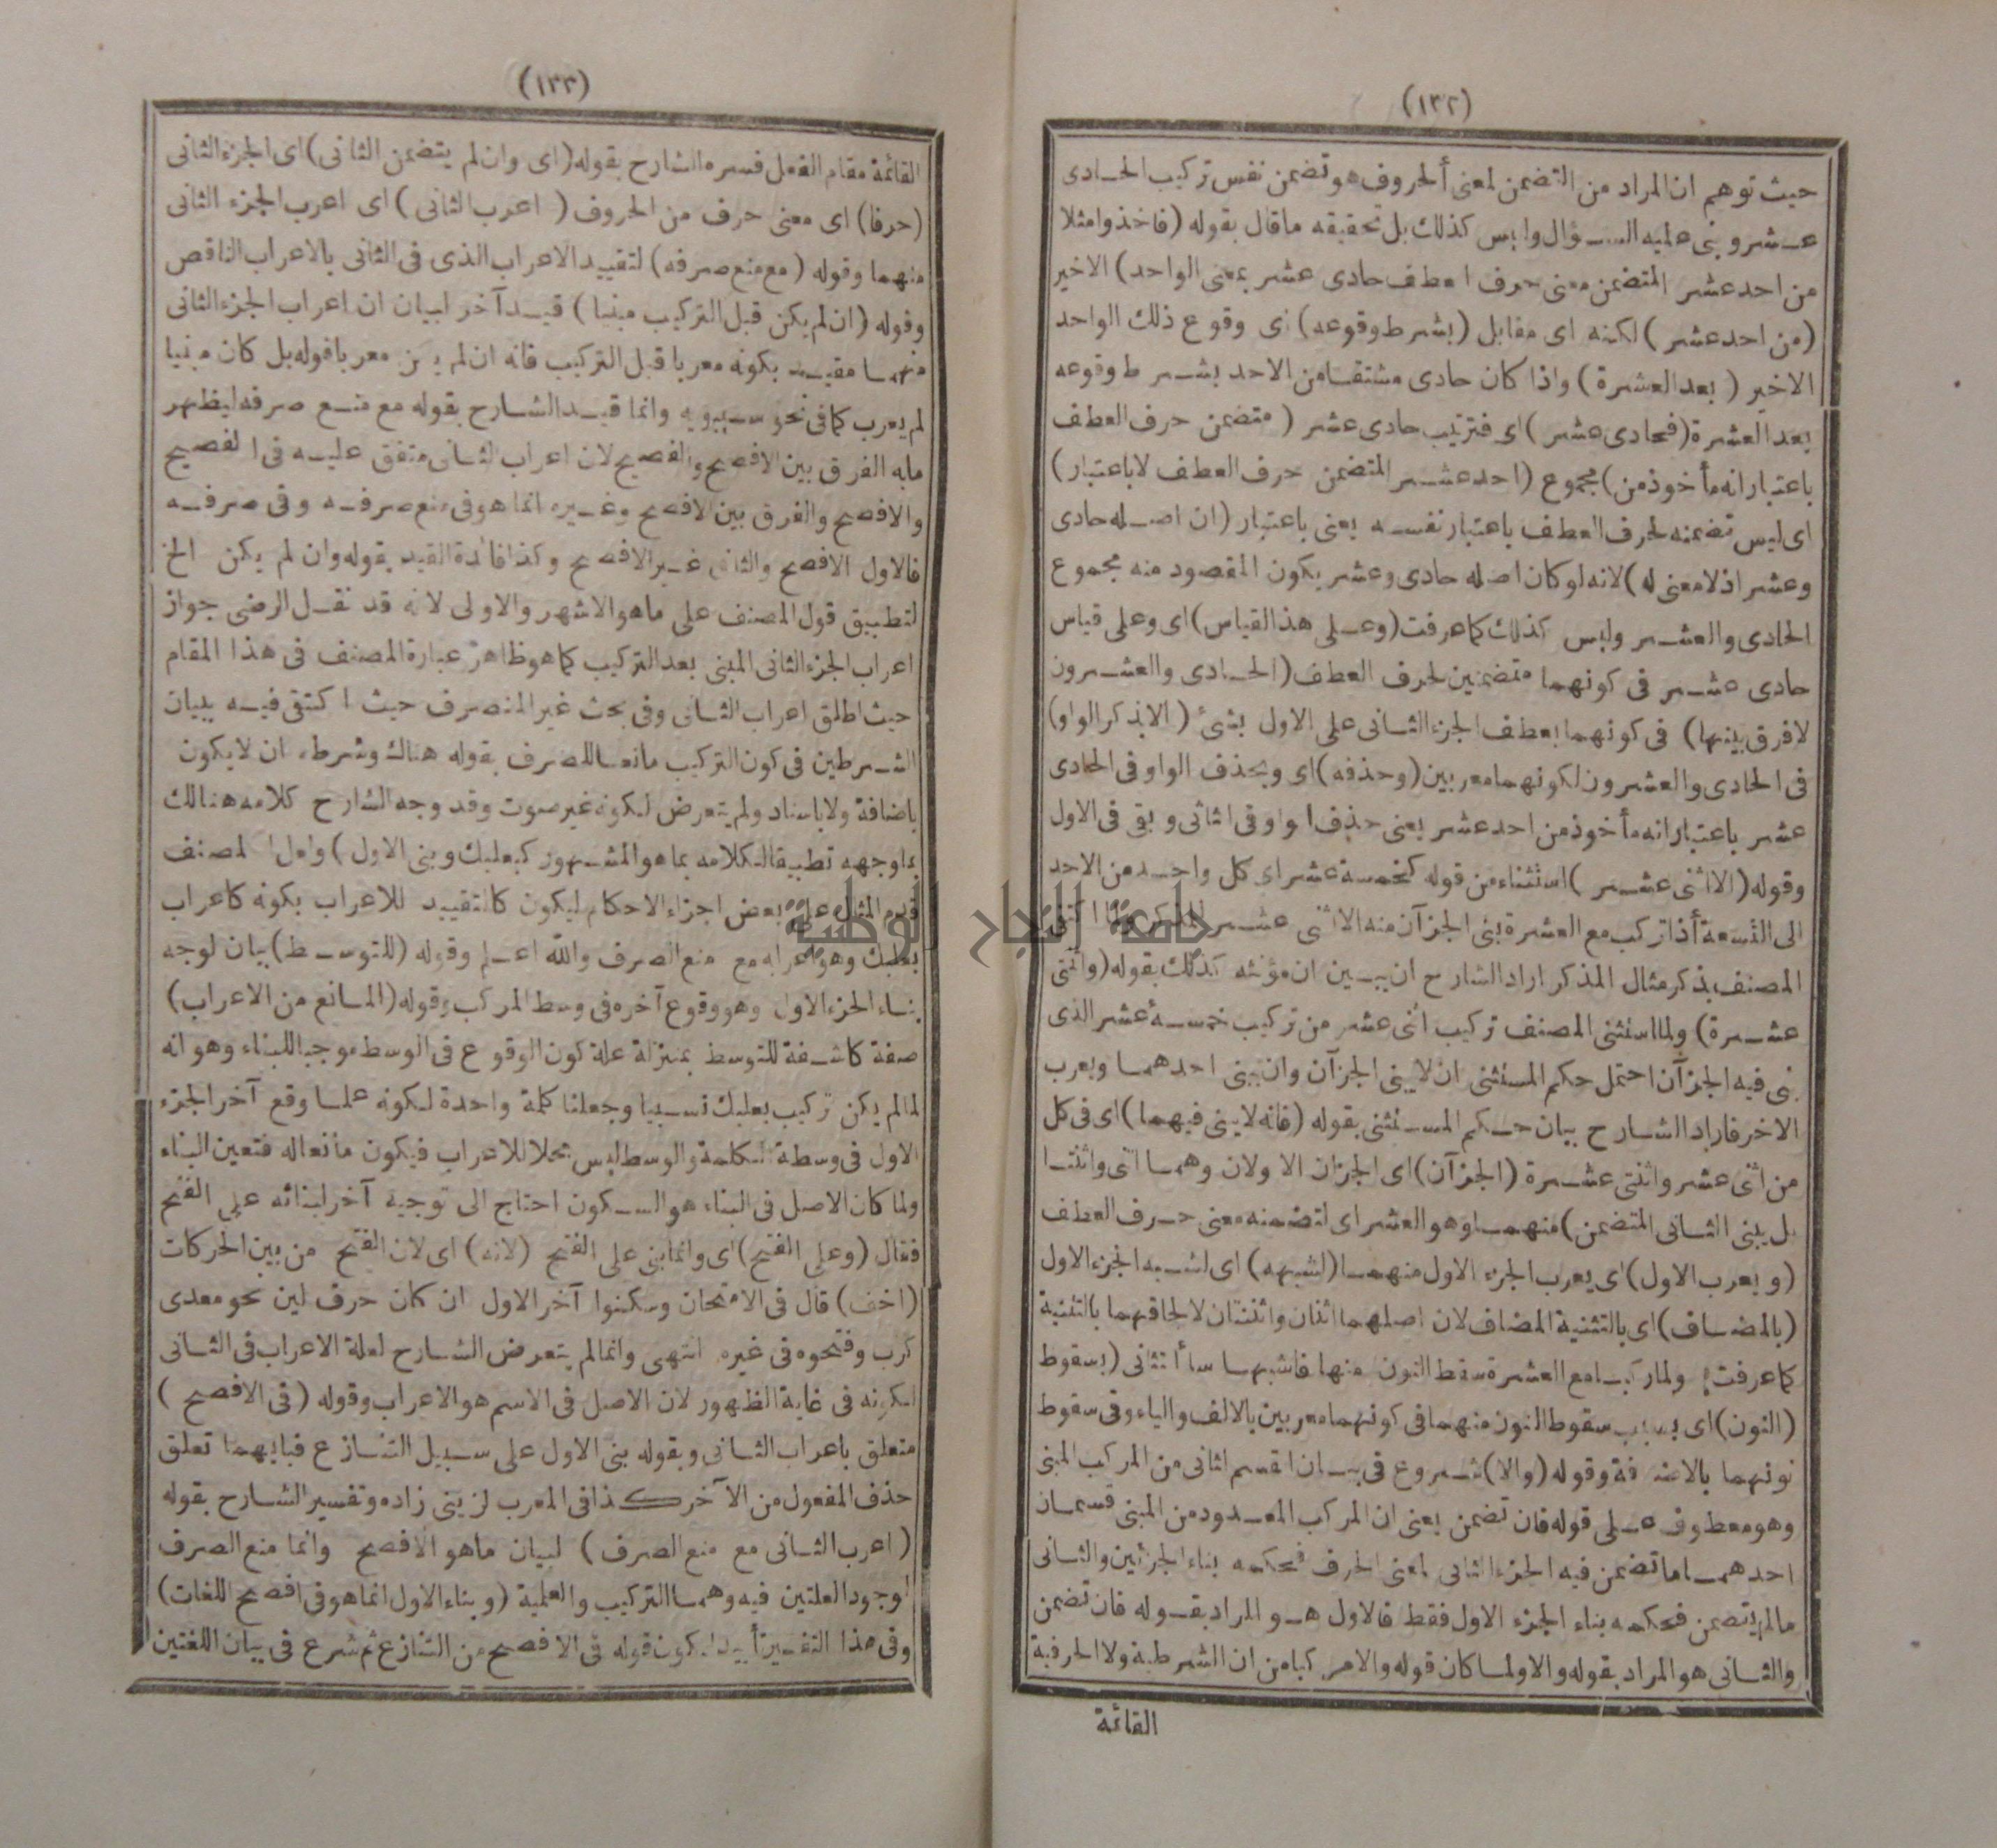 (١٣٢)
حيث توهم ان المراد من التضمن لمعنى ألحروف هو تضمن نفس تركيب الحادى
عشر وبنى عليه السؤال وليس كذلك بل تحقيقه ماقال بقوله (فاخذوا مثلا
من احد عشر المتضمن معنى حرف العطف حادى عشر بمعنى الواحد) الاخير
(من احد عشر) لكنه اى مقابل (بشرط وقوعه) اى وقوع ذلك الواحد
الاخير (بعد العشرة) واذا كان حادى مشتقا من الاحد بشرط وقوعه
بعد العشرة (فحادى عشر) اى فترتيب حادى عشر (متضمن حرف العطف
باعتبار انه مأخوذ من) مجموع (احد عشر المتضمن حرف العطف لاباعتبار)
اى ليس تضمنه لحرف العطف باعتبار نفسه يعنى باعتبار (ان اصله حادى
وعشر اذلا معنى له) لانه لوكان اصله حادى وعشر يكون المقصود منه مجموع
الحادى والعشر وليس كذلك كما عرفت (وعلى هذا القياس) اى وعلى قياس
حادى عشر فى كونهما متضمنين لحرف العطف (الحادى والعشرون
لافرق بينهما) فى كونهما بعطف الجزء الثانى على الاول بشئ (الابذكر الواو)
فى الحادى والعشرون لكونهما معربين (وحذفه) اى وبحذف الواو فى الحادى
عشر باعتبار انه مأخوذ من احد عشر يعنى حذف الواو فى الثانى وبقى فى الاول
وقوله (الا اثنى عشر) استثناء من قوله كخمسة عشر اى كل واحد من الاحد
الى التسعة أذا تركب مع العشرة بنى الجزآن منه الا اثنى عشر المذكر ولما اكتفى
المصنف بذكر مثال المذكر اراد الشارح ان يبين ان مؤنثه كذلك بقوله (واثنتى
عشرة) ولما استثنى المصنف تركيب اثنى عشر من تركيب خمسة عشر الذى
بنى فيه الجزآن احتمل حكم المستثنى ان لايبنى الجزآن وان يبنى احدهما ويعرب
الاخر فاراد الشارح بيان حكم المستثنى بقوله (فانه لايبنى فيهما) اى فى كل
من اثنى عشر واثنتى عشرة (الجزآن) اى الجزان الاولان وهما اثنى واثنتا
بل يبنى الثانى المتضمن) منهما وهو العشر اى لتضمنه معنى حرف العطف
(ويعرب الاول) اى يعرب الجزء الاول منهما (لشبهه) اى لشبه الجزء الاول
(بالمضاف) اى بالتثنية المضاف لان اصلهما اثنان واثنتان لالحاقهما بالتثنية
كما عرفت ولما ركبا مع العشرة سقط النون منها فاشبها (بسقوط
(النون) اى بسبب سقوط النون منهما فى كونهما معربين بالالف والياء وفى سقوط
نونهما بالاضافة وقوله (والا) شروع فى بيان القسم الثانى من المركب المبنى
وهو معطوف على قوله فان تضمن يعنى ان المركب المعدود من المبنى قسمان
احدهما ماتضمن فيه الجزء الثانى لمعنى الحرف فحكمه بناء الجزئين والثانى
مالم يتضمن فحكمه بناء الجزء الاول فقط فالاول هو المراد بقوله فان تضمن
والثانى هو المراد بقوله والا ولما كان قوله والا مركبا من ان الشرطية ولا الحرفية
القائمة
(١٣٣)
القائمة مقام الفعل فسره الشارح بقوله (اى وان لم يتضمن الثانى) اى الجزء الثانى
(حرفا) اى معنى حرف من الحروف (اعرب الثانى) اى اعرب الجزء الثانى
منهما وقوله (مع منع صرفه) لتقييد الاعراب الذى فى الثانى بالاعراب الناقص
وقوله (ان لم يكن قبل التركيب مبنيا) قيد آخر لبيان ان اعراب الجزء الثانى
منهما مقيد بكونه معربا قبل التركيب فانه ان لم يكن معربا قوله بل كان مبنيا
لم يعرب كما فى نحو سيبويه وانما قيد الشارح بقوله مع منع صرفه ليظهر
مابه الفرق بين الافصح والفصيح لان اعراب الثانى متفق عليه فى الفصيح
والافصح والفرق بين الافصح وغيره انما هو فى منع صرفه وفى صرفه
فالاول الافصح والثانى غير الافصح وكذا فائدة القيد بقوله وان لم يكن الخ
لتطبيق قول المصنف على ماهو الاشهر والاولى لانه قد نقل الرضى جواز
اعراب الجزء الثانى المبنى بعد التركيب كما هو ظاهر عبارة المصنف فى هذا المقام
حيث اطلق اعراب الثانى وفى بحث غير المنصرف حيث اكتفى فيه ببيان
الشرطين فى كون التركيب مانعا للصرف بقوله هناك وشرطه ان لايكون
باضافة ولا باسناد ولم يتعرض لكونه غير صوت وقد وجه الشارح كلامه هنالك
بما وجهه تطبيقا لكلامه بما هو المشهور كبعلبك وبنى الاول) ولعل المصنف
قدم المثال على بعض اجزاء الاحكام ليكون كالتقييد للاعراب بكونه كاعراب
بعلبك وهو اعرابه مع منع الصرف والله اعلم وقوله (للتوسط) بيان لوجه
بناء الجزء الاول وهو وقوع آخره فى وسط المركب وقوله (المانع من الاعراب)
صفة كاشفة للتوسط بمنزلة علة كون الوقوع فى الوسط موجبا للبناء وهو انه
لما لم يكن تركيب بعلبك نسبيا وجعلنا كلمة واحدة لكونه علما وقع آخر الجزء
الاول فى وسطة الكلمة والوسط ليس محلا للاعراب فيكون مانعا له فتعين البناء
ولما كان الاصل فى البناء هو السكون احتاج الى توجيه آخر لبنائه على الفتح
فقال (وعلى الفتح) اى وانما بنى على الفتح (لانه) اى لان الفتح من بين الحركات
(اخف) قال فى الامتحان وسكنوا آخر الاول ان كان حرف لين نحو معدى
كرب وفتحوه فى غيره انتهى وانما لم يتعرض الشارح لعلة الاعراب فى الثانى
لكونه فى غاية الظهور لان الاصل فى الاسم هو الاعراب وقوله (فى الافصح)
متعلق باعراب الثانى وبقوله بنى الاول على سبيل التنازع فبايهما تعلق
حذف المفعول من الآخر كذا فى المعرب لزينى زاده وتفسير الشارح بقوله
(اعرب الثانى مع منع الصرف) لبيان ماهو الافصح وانما منع الصرف
لوجود العلتين فيه وهما التركيب والعلمية (وبناء الاول انما هو فى افصح اللغات)
وفى هذا التفسير تأييد لكون قوله فى الافصح من التنازع ثم شرع فى بيان اللغتين
جامعة النجاح الوطنية